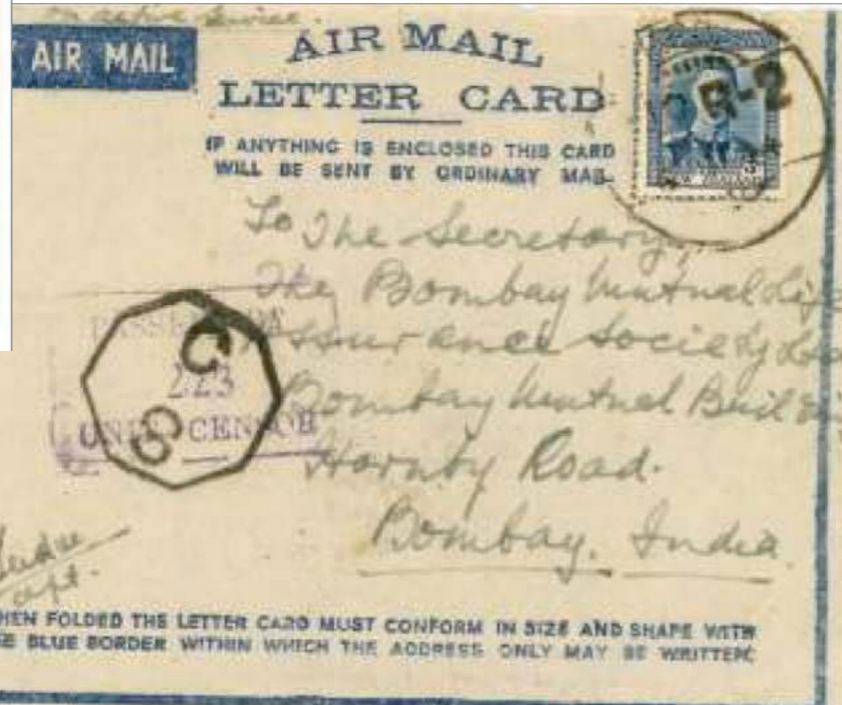 on active service.
AIR MAIL
AIR MAIL
LETTER CARD
IF ANYTHING IS ENCLOSED THIS CARD
WILL BE SENT BY ORDINARY MAIL
To The Secretary,
The Bombay Mutual Life
Assurance Society Ltd
Bombay Mutual Building
Hornby Road.
Bombay. India
PASSED BY
223
UNIT CENSOR
C
69
Capt.
WHEN FOLDED THE LETTER CARD MUST CONFORM IN SIZE AND SHAPE WITH
THE BLUE BORDER WITHIN WHICH THE ADDRESS ONLY MAY BE WRITTEN.